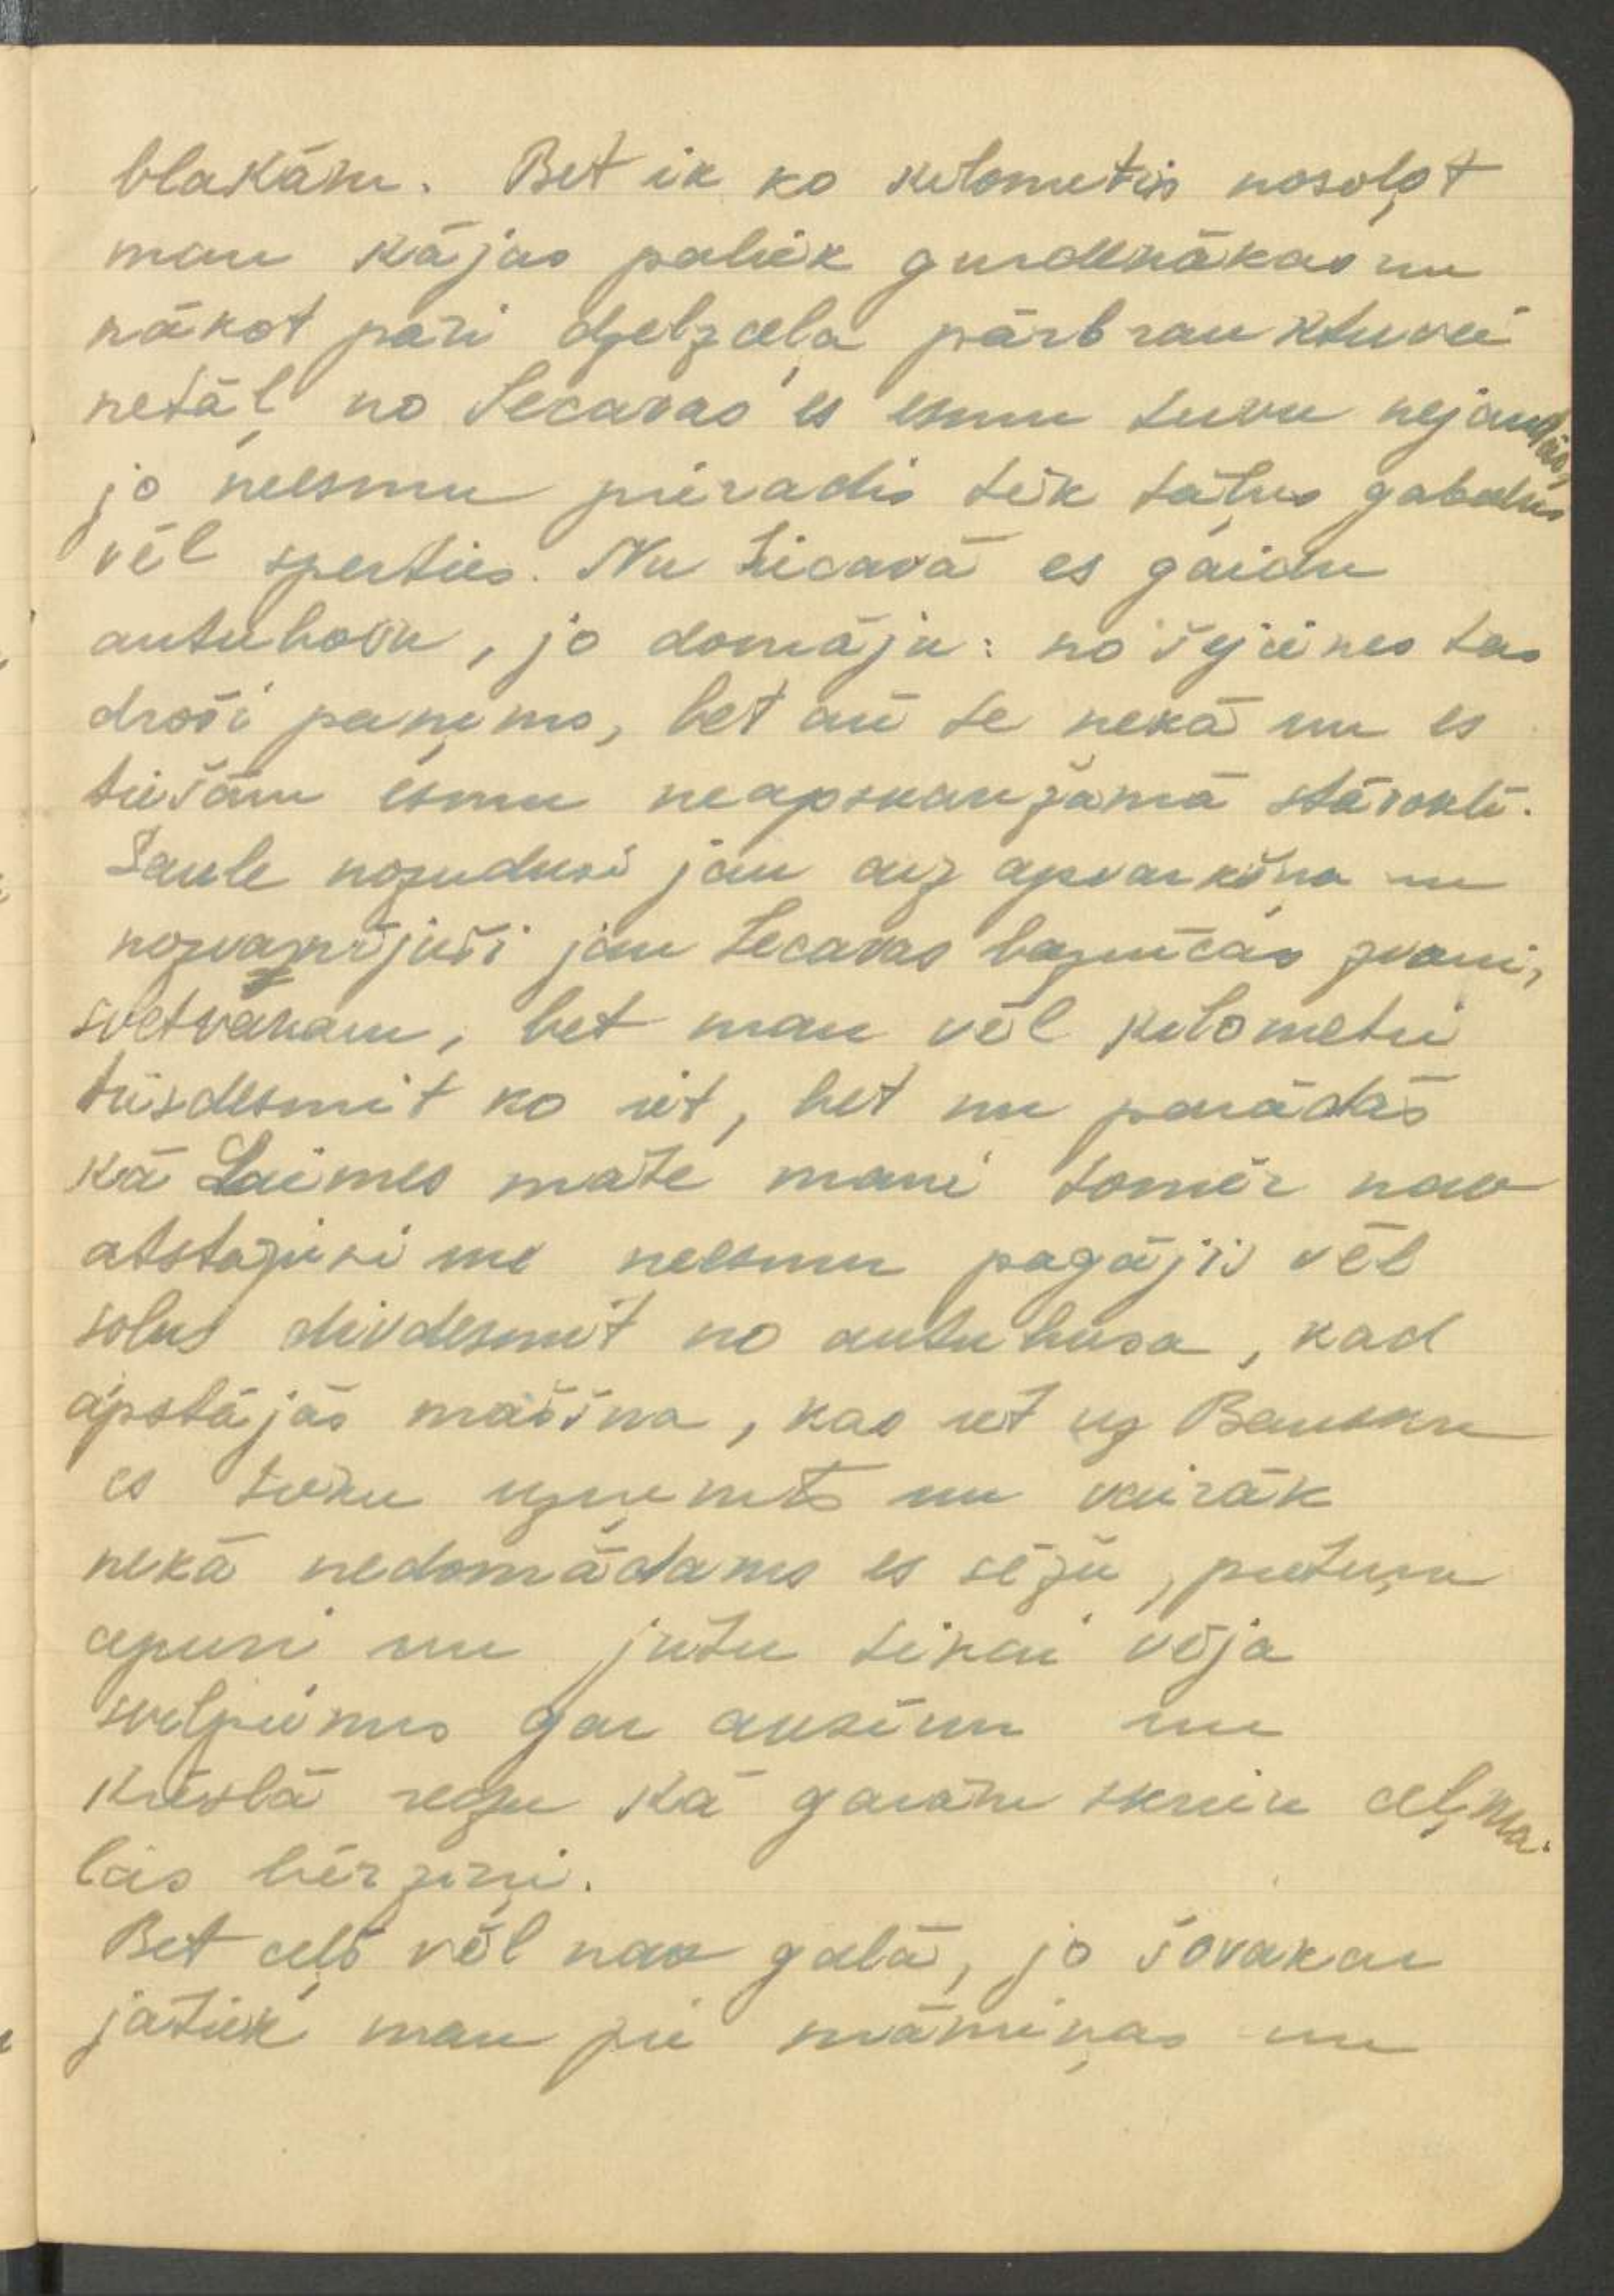 blakām. Bet ik ko kilometris nosoļot
man kājas paliek gurdenākas un
nākot pāri dzelzceļa pārbrauktuvei
netāļ no Iecavas es esmu tuvu nejaušās,
jo neesmu pieradis tik tāļus gabalus
vēl sperties. Nu Iecavā es gaidu
autubusu, jo domāju: no šejienes tas
droši paņems, bet arī te nekā un es
tiešām esmu neapskaužamā stāvoklī.
Saule nozudusi jau aiz apvārkšņa un
nozvanījuši jau Iecavas baznīcās zvani,
svētvakaru, bet man vēl kilometri
trīsdesmit ko iet, bet nu parādās
kā Laimes māte mani tomēr nav
atstājusi un neesmu pagājis vēl
soļus divdesmit no autubusa, kad
apstājās mašīna, kas iet uz Bausku
es tieku uzņemts un vairāk
nekā nedomādams es sēžu, putekļu
apurī un jūtu tikai vēja
svelpienus gar ausīm un
krēslā redzu kā garām skrien ceļma-
las bērziņi.
Bet ceļš vēl nav galā, jo šovakar
jātiek man pie māmiņas un